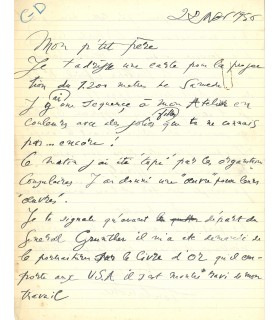 GD
22 Nov 1956
Mon p'tit père
Je t'adresse une carte pour la projec
tion du 1.200 mètres de Samedi
J'ai une séquence à mon Atelier en
couleurs avec des jolies filles que tu ne connais
pas... encore !
Ce matin j'ai été "tapé" par les organisations
Consulaires. J'ai donné une "œuvre" pour leurs
"œuvres".
Je te signale qu'avant le départ du
Général Gruenther il m'a été demandé de
le portraiturer sur le Livre d'Or qu'il em-
porte aux U.S.A il s'est montré ravi de mon
travail